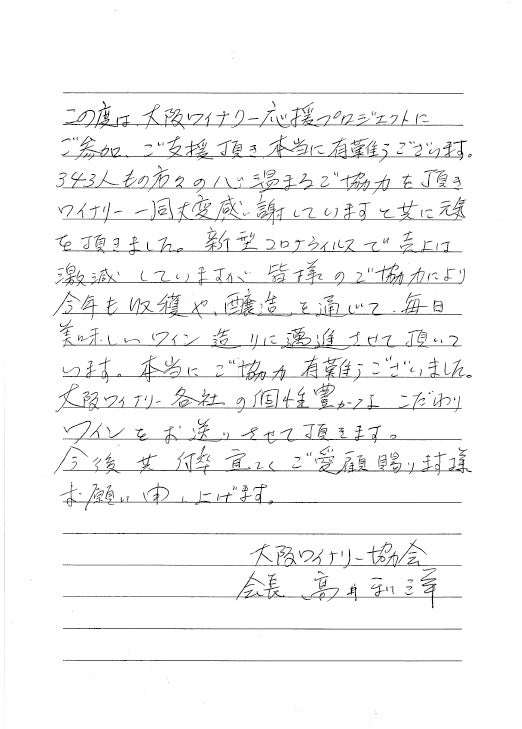 この度は、大阪ワイナリー応援プロジェクトに
ご参加、ご支援頂き本当に有難うございます。
343人もの方々の心温まるご協力を頂き
ワイナリー一同大変感謝していますと共に元気
を頂きました。新型コロナウイルスで売上は
激減していますが、皆様のご協力により
今年も収穫や、醸造を通じて、毎日
美味しいワイン造りに邁進させて頂いて
います。本当にご協力有難うございました。
大阪ワイナリー各社の個性豊かなこだわり
ワインをお送りさせて頂きます。
今後共何卒宜しくご愛顧賜ります様
お願い申し上げます。
大阪ワイナリー協会
会長 高井利洋